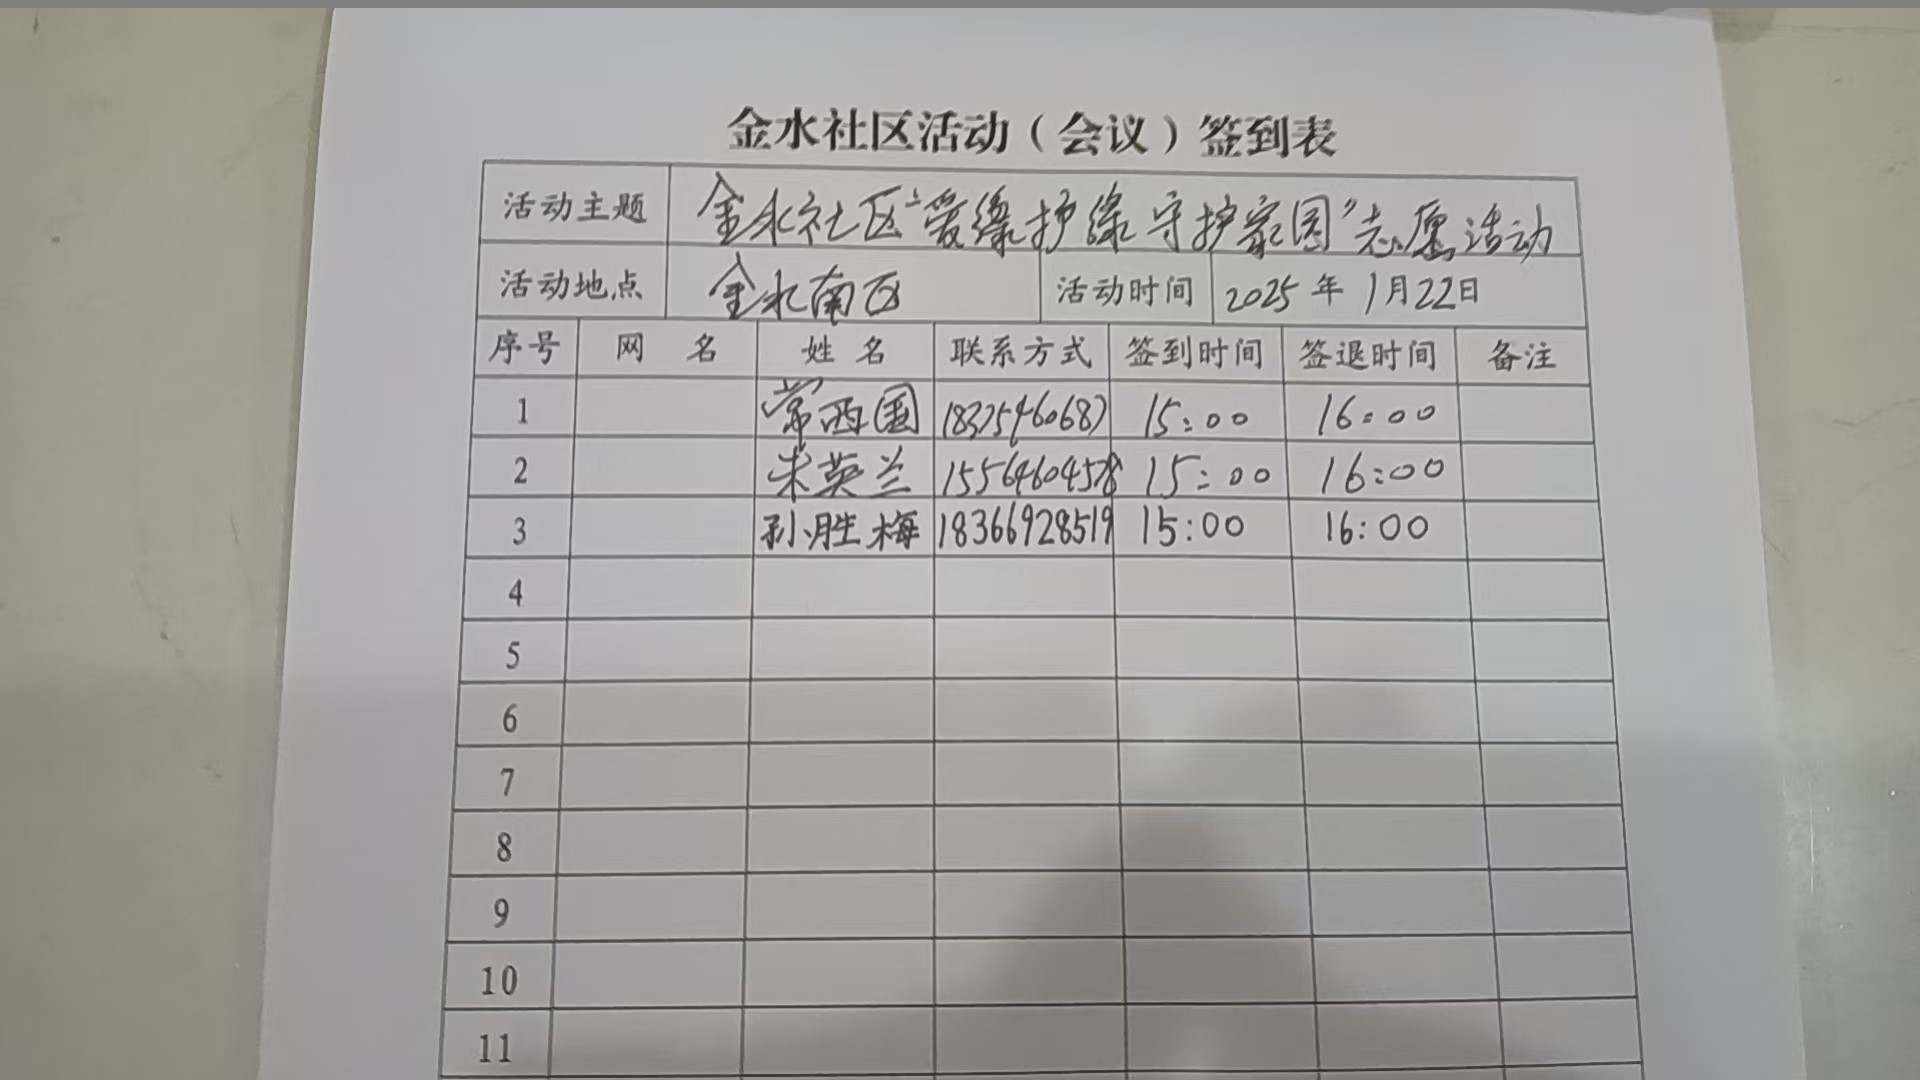 金水社区活动（会议）签到表
活动主题 金水社区“爱绿护绿 守护家园”志愿活动
活动地点 金水南区 活动时间 2025年1月22日
序号 网名 姓名 联系方式 签到时间 签退时间 备注
1 常西国 15:00 16:00
2 朱英兰 15:00 16:00
3 孙胜梅 18366928519 15:00 16:00
4
5
6
7
8
9
10
11